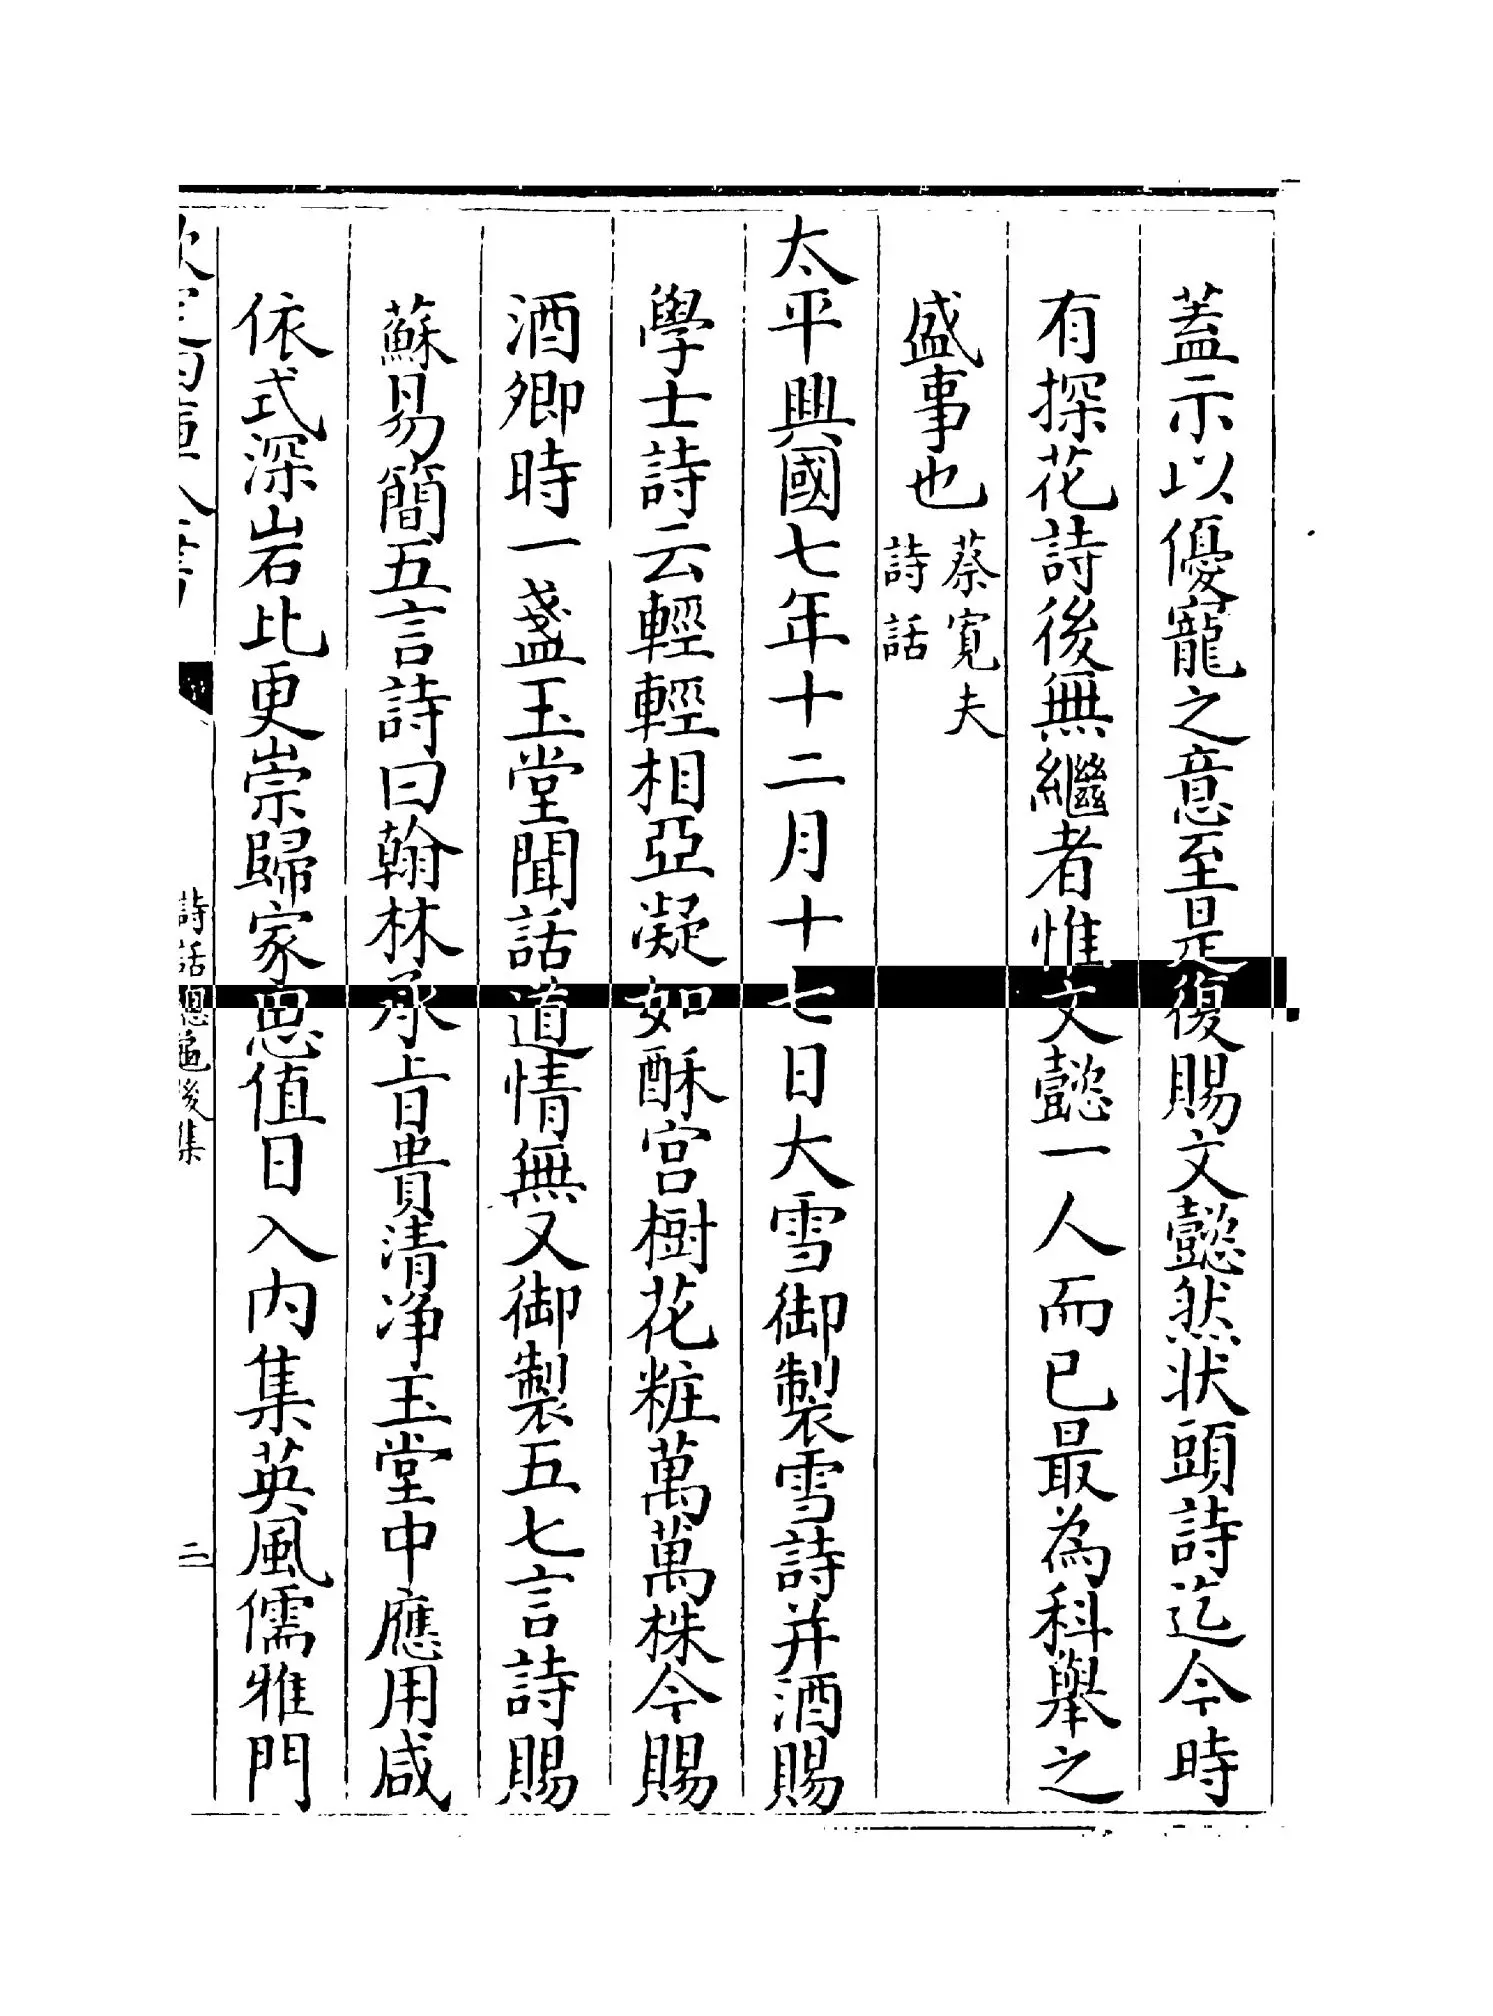 蓋示以優寵之意至是復賜文懿然狀頭詩迄今時
有探花詩後無繼者惟文懿一人而已最為科舉之
盛事也蔡寛夫
詩話
太平興國七年十二月十七日大雪御製雪詩并酒賜
學士詩云輕輕相亞凝如酥宫樹花粧萬萬株今賜
酒卿時一盞玉堂聞話道情無又御製五七言詩賜
蘇易簡五言詩曰翰林承旨貴清净玉堂中應用咸
依式深岩比更崇歸家思值日入内集英風儒雅門
詩話總龜後集
二